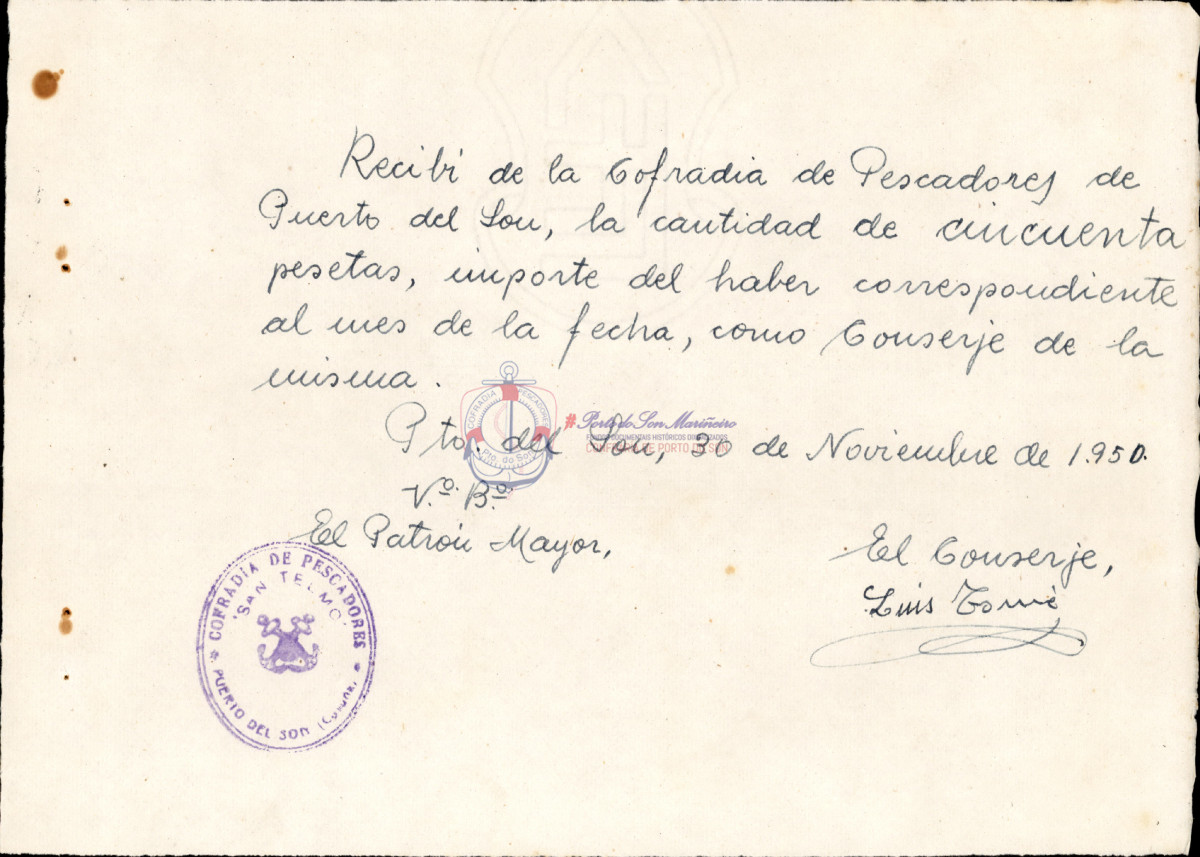 Recibí de la Cofradia de Pescadores de
Puerto del Son, la cantidad de cincuenta
pesetas, importe del haber correspondiente
al mes de la fecha, como Conserje de la
misma.
COFRADIA PESCADORES
Pto. do Son
#Porto do Son Mariñeiro
FONDOS DOCUMENTAIS HISTÓRICOS DIXITALIZADOS
CONFRARÍA DE PORTO DO SON
Pto. del Son, 30 de Noviembre de 1.950.
V.º B.º
El Patrón Mayor,
El Conserje,
Luis Tomé
COFRADIA DE PESCADORES
"SAN TELMO"
PUERTO DEL SON (Coruña)